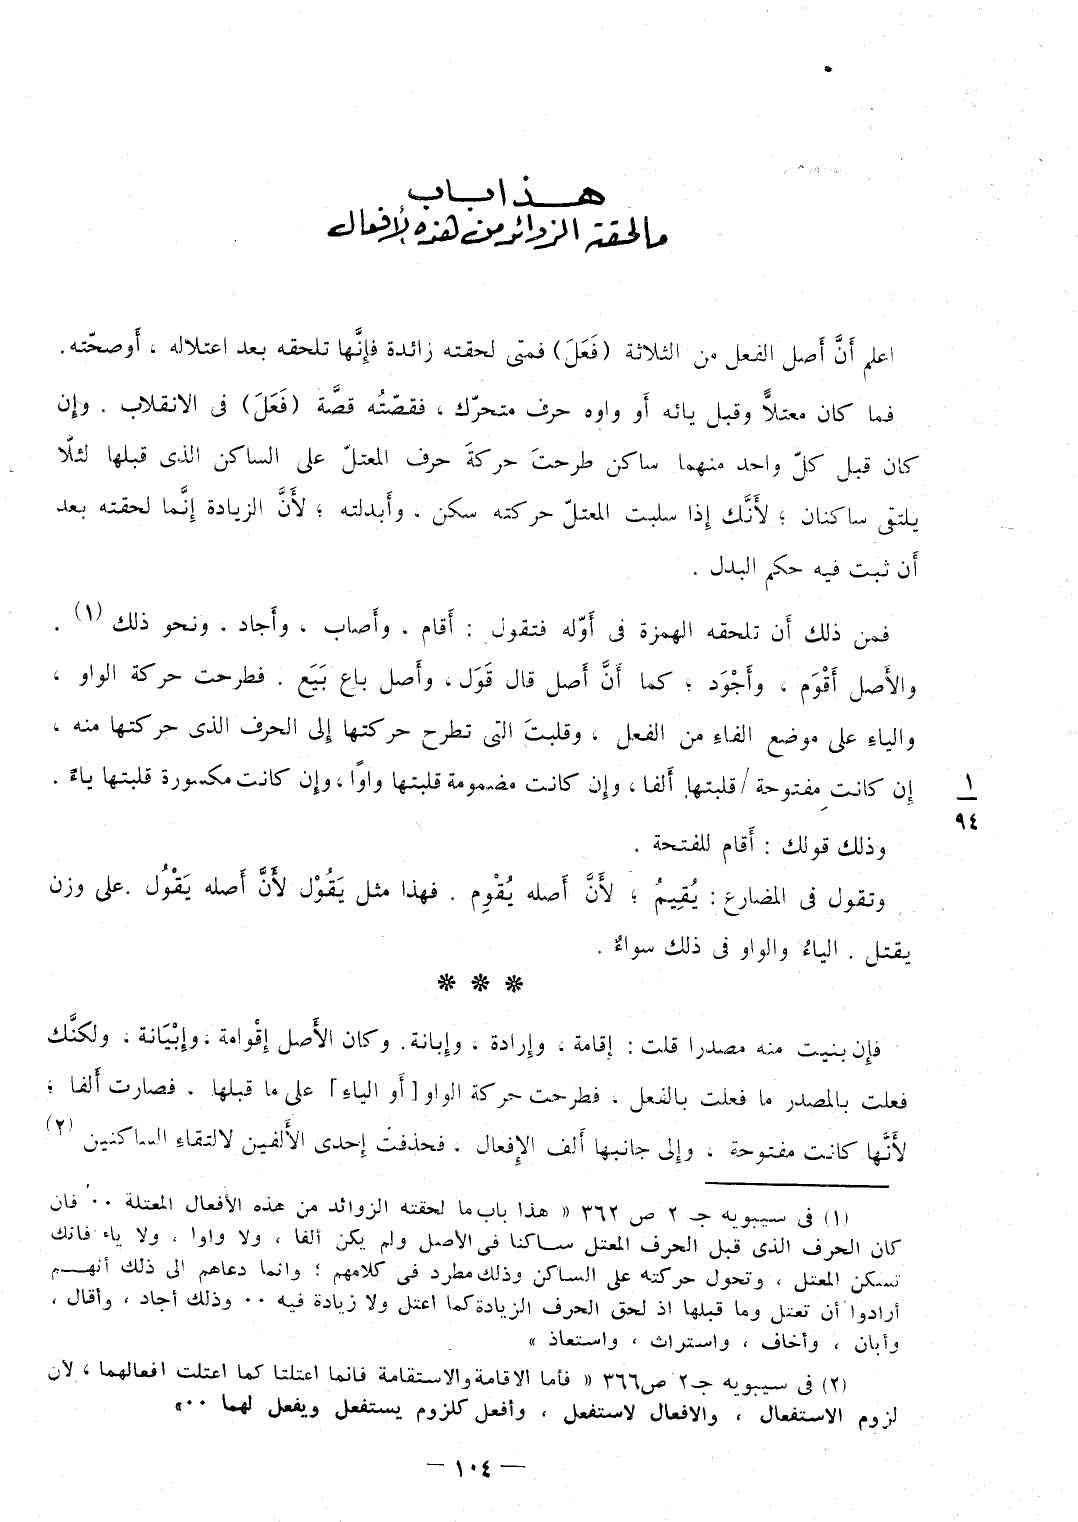 هذا باب
ما لحقته الزوائد من هذه الأفعال
اعلم أَنَّ أصل الفعل من الثلاثة (فَعَلَ) فمتى لحقته زائدة فإِنَّها تلحقه بعد اعتلاله ، أَوصحّته.
فما كان معتلاًّ وقبل يائه أو واوه حرف متحرّك ، فقصّتُه قصَّة (فَعَلَ) فى الانقلاب . وإِن
كان قبل كلّ واحد منهما ساكن طرحتَ حركةَ حرف المعتلّ على الساكن الذى قبلها لئلّا
يلتقى ساكنان ؛ لأَنَّك إِذا سلبت المعتلّ حركته سكن . وأَبدلته ؛ لأَنَّ الزيادة إِنَّما لحقته بعد
أَن ثبت فيه حكم البدل .
فمن ذلك أن تلحقه الهمزة فى أَوّله فتقول : أَقام . وأَصاب ، وأَجاد . ونحو ذلك (١) .
والأَصل أَقْوَم ، وأَجْوَد ؛ كما أَنَّ أَصل قال قَوَل ، وأَصل باع بَيَع . فطرحت حركة الواو ،
والياء على موضع الفاء من الفعل ، وقلبتَ التى تطرح حركتها إِلى الحرف الذى حركتها منه ،
إِن كانت مفتوحة / قلبتها أَلفا ، وإِن كانت مضمومة قلبتها واوًا ، وإِن كانت مكسورة قلبتها ياءً .
١
٩٤
وذلك قولك : أَقام للفتحة .
وتقول فى المضارع : يُقِيمُ ؛ لأَنَّ أصله يُقْوِم . فهذا مثل يَقُوْل لأَنَّ أَصله يَقْوُل . على وزن
يقتل . الياءُ والواو فى ذلك سواءٌ .
* * *
فإِن بنيت منه مصدرا قلت : إِقامة ، وإِرادة ، وإِبانة. وكان الأَصل إِقْوامة ، وإِبْيَانة ، ولكنَّك
فعلت بالمصدر ما فعلت بالفعل ، فطرحت حركة الواو [أَو الياء] على ما قبلها . فصارت أَلفا ؛
لأَنَّها كانت مفتوحة ، وإِلى جانبها أَلف الإِفعال . فحذفتَ إِحدى الأَلفين لالتقاء الساكنين (٢)
(١) فى سيبويه جـ ٢ ص ٣٦٢ « هذا باب ما لحقته الزوائد من هذه الأفعال المعتلة ٠٠ فان
كان الحرف الذى قبل الحرف المعتل ساكنا فى الأصل ولم يكن ألفا ، ولا واوا ، ولا ياء فانك
تسكن المعتل ، وتحول حركته على الساكن وذلك مطرد فى كلامهم ؛ وانما دعاهم الى ذلك أنهم
أرادوا أن تعتل وما قبلها اذ لحق الحرف الزيادة كما اعتل ولا زيادة فيه ٠٠ وذلك أجاد ، وأقال ،
وأبان ، وأخاف ، واستراث ، واستعاذ »
(٢) فى سيبويه جـ٢ ص٣٦٦ « فأما الاقامة والاستقامة فانما اعتلتا كما اعتلت افعالهما ، لأن
لزوم الاستفعال ، والافعال لاستفعل ، وأفعل كلزوم يستفعل ويفعل لهما ٠٠»
— ١٠٤ —